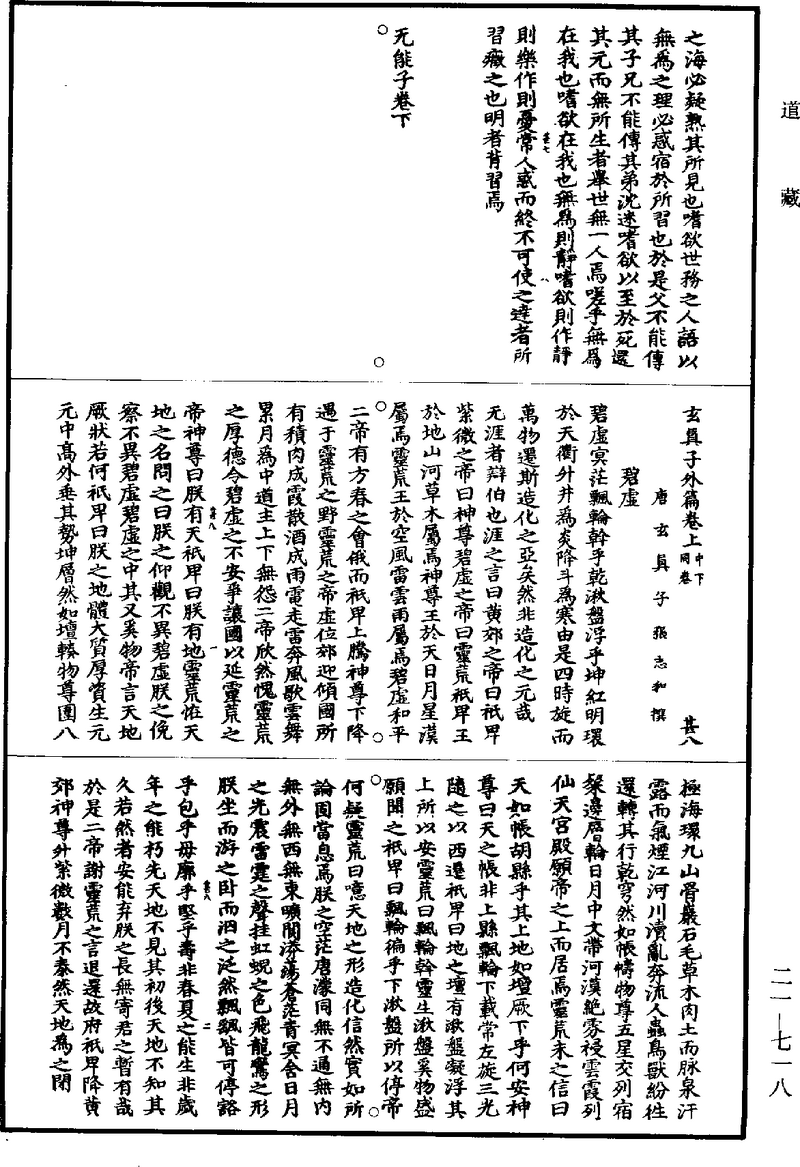 道藏
之海必疑熟其所見也嗜欲世務之人語以
無為之理必惑宿於所習也於是父不能傳
其子兄不能傳其弟沈迷嗜欲以至於死還
其元而無所生者舉世無一人焉嗟乎無為
在我也嗜欲在我也無為則靜嗜欲則作靜
則樂作則憂常人惑而終不可使之達者所
習癥之也明者背習焉
无能子卷下
玄真子外篇卷上 中下同卷 甚八
唐玄真子張志和撰
碧虛
碧虛冥茫飄輪斡乎乾湫盤浮乎坤紅明環
於天衢外井為炎降斗為寒由是四時旋而
萬物遷斯造化之亞矣然非造化之元哉
无涯者辯伯也涯之言曰黃郊之帝曰祇卑
紫微之帝曰神尊碧虛之帝曰靈荒祇卑王
於地山河草木屬焉神尊王於天日月星漢
屬焉靈荒王於空風雷雲雨屬焉碧虛和平
二帝有方春之會俄而祇卑上騰神尊下降
遇于靈荒之野靈荒之帝虛位郊迎傾國所
有積肉成霞散酒成雨電走雷奔風歌雲舞
累月為中道主上下無怨二帝欣然愧靈荒
之厚德令碧虛之不安爭讓國以延靈荒之
帝神尊曰朕有天祇卑曰朕有地靈荒恠天
地之名問之曰朕之仰觀不異碧虛朕之俛
察不異碧虛碧虛之中其又奚物帝言天地
厥狀若何祇卑曰朕之地體大質厚資生元
元中高外垂其勢坤層然如壇轃物尊圓八
極海環九山骨巖石毛草木肉土而脉泉汗
露而氣煙江河川瀆亂奔流人蟲鳥獸紛往
還轉其行乾穹然如帳幬物尊五星交列宿
粲邊曆輪日月中文帶河漢絕霧祲雲霞列
仙天宮殿願帝之上而居焉靈荒未之信曰
天如帳胡縣乎其上地如壇厥下乎何安神
尊曰天之帳非上縣飄輪下載常左旋三光
隨之以西遷祇卑曰地之壇有湫盤凝浮其
上所以安靈荒曰飄輪斡靈生湫盤奚物盛
願聞之祇卑曰飄輪徧乎下湫盤所以停帝
何疑靈荒曰噫天地之形造化信然實如所
論固當息焉朕之空茫唐濛同無不通無內
無外無西無東曠閬漭蕩蒼茫青冥含日月
之光震雷霆之聲挂虹蜺之色飛龍鸞之形
朕坐而游之臥而泅之泛然飄飄皆可停豁
乎包乎毋廓乎堅乎壽非春夏之能生非歲
年之能朽先天地不見其初後天地不知其
久若然者安能弃朕之長無寄君之暫有哉
於是二帝謝靈荒之言退還故府祇卑降黃
郊神尊升紫微數月不泰然天地為之閉
二一—七一八